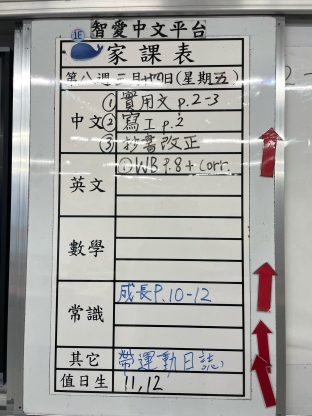 1E
智愛中文平台
家課表
第八週三月廿四日(星期五)
中文
① 實用文 p.2-3
② 寫工 p.2
③ 抄書改正
英文
① WB P.8 + corr.
數學
常識
成長P.10-12
其它
帶運動日誌
值日生
11, 12